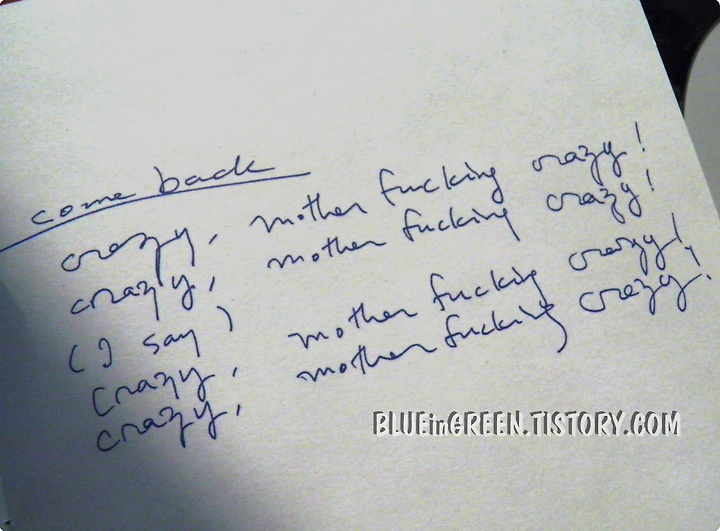 come back
crazy, mother fucking crazy!
crazy, mother fucking crazy!
(I say)
crazy, mother fucking crazy!
crazy, mother fucking crazy!
BLUEinGREEN.TISTORY.COM